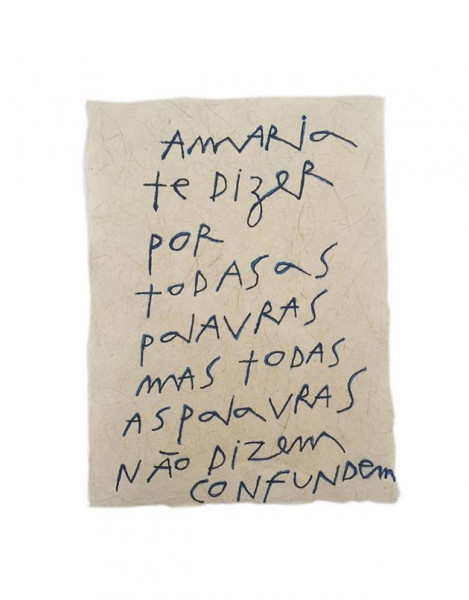 AMARia
te DizER
POR
toDASaS
PalAVRAS
MAS toDAS
ASPalaVRAS
NÃO DizEm
CONFUNDEm